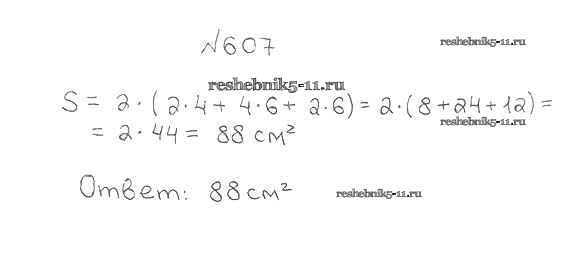 №607
reshebnik5-11.ru
reshebnik5-11.ru
S = 2 · (2·4 + 4·6 + 2·6) = 2·(8+24+12) =
reshebnik5-11.ru
= 2 · 44 = 88 см²
Ответ: 88 см²
reshebnik5-11.ru